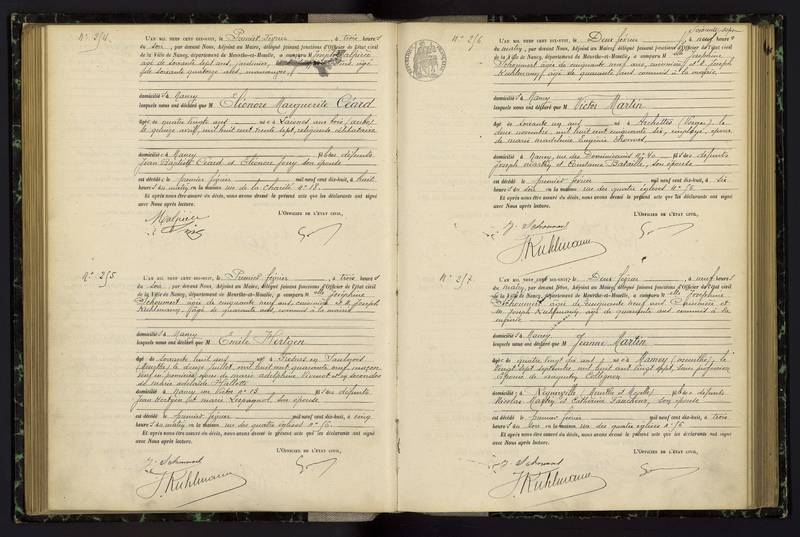 N° 294
L'AN MIL NEUF CENT DIX-HUIT, le Premier février, à trois heures
du soir, par devant Nous, Adjoint au Maire, délégué faisant fonctions d'Officier de l'état civil
de la Ville de Nancy, département de Meurthe-et-Moselle, a comparu M Joseph Malpièce
âgé de soixante sept ans, jardinier,
de soixante quatorze ans, manoeuvre,
domiciliés à Nancy
lesquels nous ont déclaré que M Eléonore Marguerite Céard
âgée de quatre vingts ans née à Laisnes aux bois (aube)
le quinze août mil huit cent trente sept, religieuse célibataire
domiciliée à Nancy fille des défunts
Jean Baptiste Céard et Eléonore Jouy son épouse
est décédée le premier février mil neuf cent dix-huit, à huit
heures du matin en la maison rue de la Charité n° 18.
Et après nous être assuré du décès, nous avons dressé le présent acte que les déclarants ont signé
avec Nous après lecture.
L'OFFICIER DE L'ÉTAT CIVIL,
Malpièce
N° 295
L'AN MIL NEUF CENT DIX-HUIT, le Premier février, à trois heures
du soir, par devant Nous, Adjoint au Maire, délégué faisant fonctions d'Officier de l'état civil
de la Ville de Nancy, département de Meurthe-et-Moselle, a comparu M elle Joséphine
Schouvert âgée de cinquante neuf ans, cuisinière et M. Joseph
Kuhlmann, âgé de quarante ans, commis à la mairie
domiciliés à Nancy
lesquels nous ont déclaré que M Emile Hertgen
âgé de soixante huit ans né à
(Meurthe) le douze juillet mil huit cent quarante neuf, maçon
veuf en premières noces de marie adelphine et en secondes
de marie adélaïde Hallotte
domicilié à Nancy rue Victor n° 13 fils des défunts
Jean Hertgen et marie son épouse
est décédé le premier février mil neuf cent dix-huit, à cinq
heures du matin en la maison rue des quatre églises n° 56.
Et après nous être assuré du décès, nous avons dressé le présent acte que les déclarants ont signé
avec Nous après lecture.
L'OFFICIER DE L'ÉTAT CIVIL,
J. Schouvert
J. Kuhlmann
N° 296
L'AN MIL NEUF CENT DIX-HUIT, le Deux février, à neuf heures
du matin, par devant Nous, Adjoint au Maire, délégué faisant fonctions d'Officier de l'état civil
de la Ville de Nancy, département de Meurthe-et-Moselle, a comparu M elle Joséphine
Schouvert âgée de cinquante neuf ans, cuisinière et M. Joseph
Kuhlmann, âgé de quarante ans commis à la mairie
domiciliés à Nancy
lesquels nous ont déclaré que M Victor Martin
âgé de soixante un ans né à Archettes (Vosges) le
deux novembre mil huit cent cinquante six, employé, époux
de marie madeleine Eugénie Thomas
domicilié à Nancy, rue des Dominicains n° 40 fils des défunts
Joseph Martin et Constance Bataille, son épouse
est décédé le premier février mil neuf cent dix-huit, à six
heures du soir en la maison rue des quatre églises n° 56
Et après nous être assuré du décès, nous avons dressé le présent acte que les déclarants ont signé
avec Nous après lecture.
L'OFFICIER DE L'ÉTAT CIVIL,
J. Schouvert
J. Kuhlmann
N° 297
L'AN MIL NEUF CENT DIX-HUIT, le Deux février, à neuf heures
du matin, par devant Nous, Adjoint au Maire, délégué faisant fonctions d'Officier de l'état civil
de la Ville de Nancy, département de Meurthe-et-Moselle, a comparu M elle Joséphine
Schouvert âgée de cinquante neuf ans Cuisinière et
M. Joseph Kuhlmann, âgé de quarante ans commis à la
mairie
domiciliés à Nancy
lesquels nous ont déclaré que M Jeanne Martin
âgée de quatre vingt dix ans, née à Mamey (meurthe), le
vingt sept septembre mil huit cent vingt sept, sans profession
Epouse de Collignon
domiciliée à (Meurthe et Moselle) fille des défunts
Nicolas Martin et Catherine son épouse
est décédée le premier février mil neuf cent dix-huit, à trois
heures du soir en la maison rue des quatre églises n° 56
Et après nous être assuré du décès, nous avons dressé le présent acte que les déclarants ont signé
avec Nous après lecture.
L'OFFICIER DE L'ÉTAT CIVIL,
J. Schouvert
J. Kuhlmann